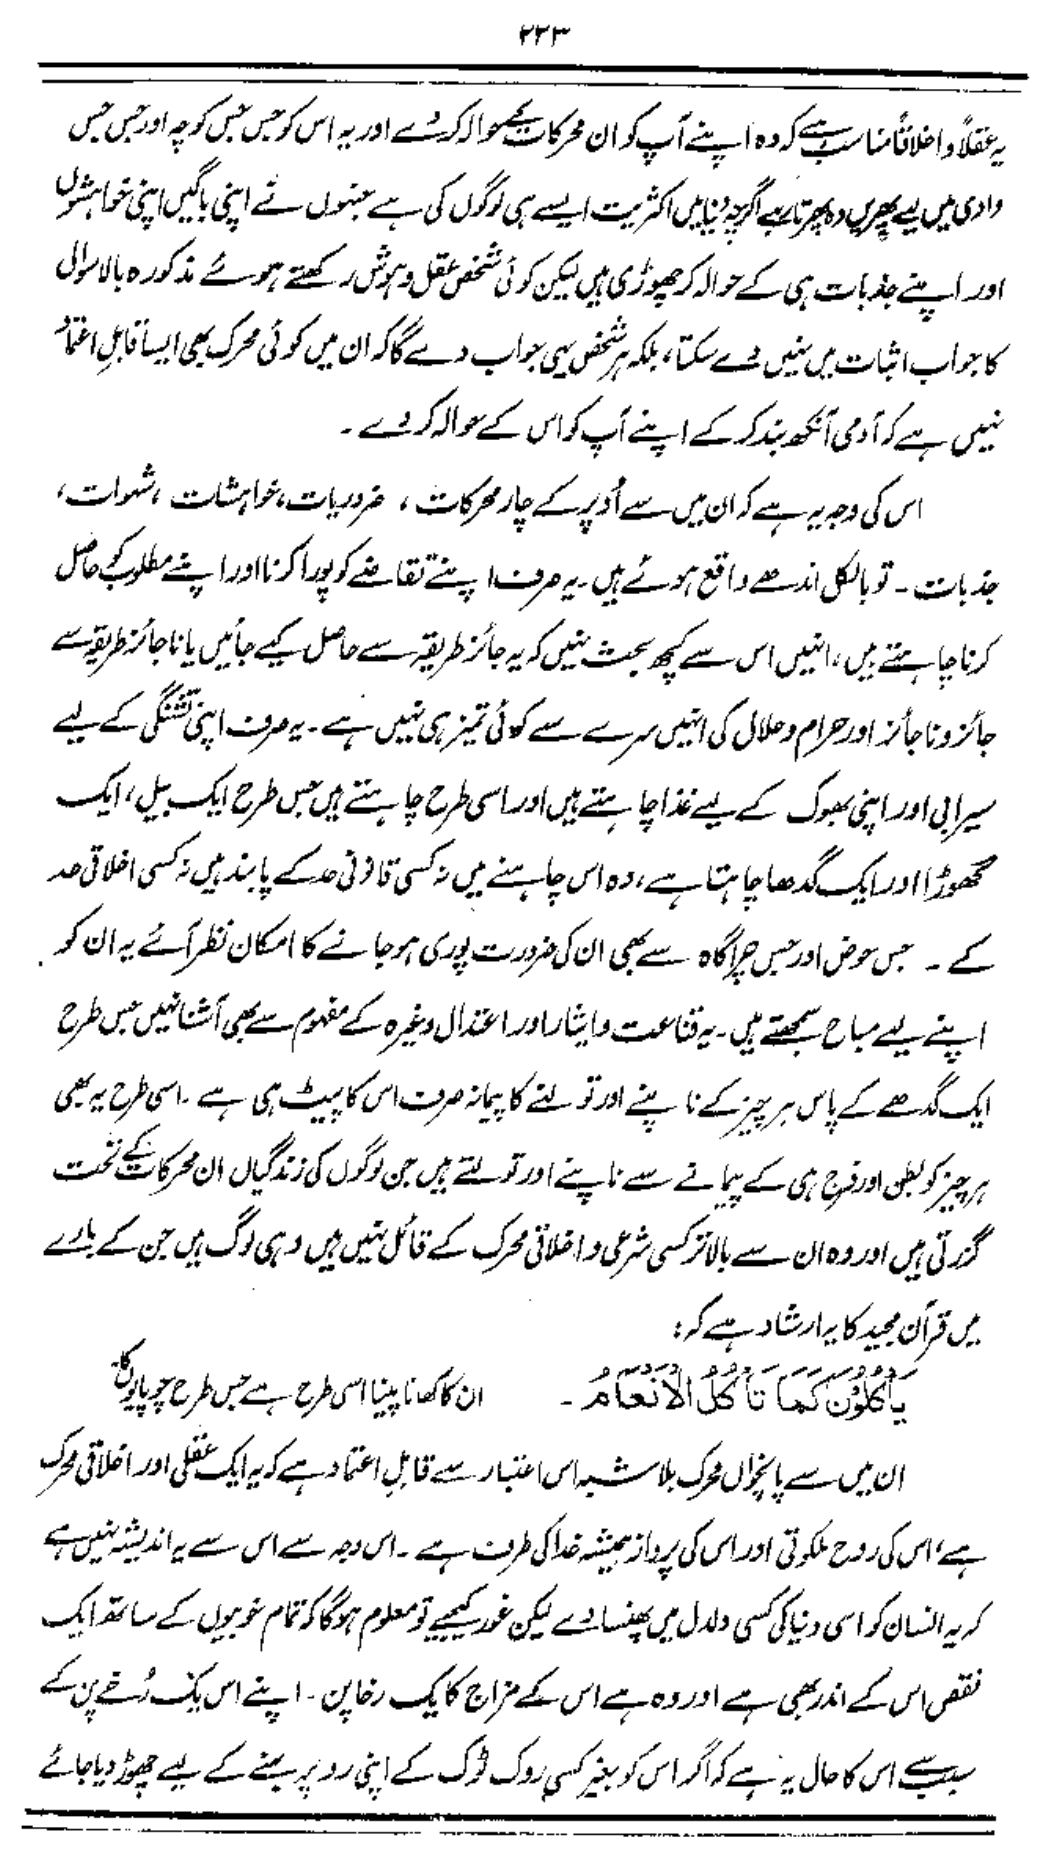 ۲۲۳
یہ عقلاً و اخلاقاً مناسب ہے کہ وہ اپنے آپ کو ان محرکات کے حوالہ کر دے اور یہ اس کو جس جس کوچہ اور جس جس
وادی میں لیے پھریں وہ پھرتا رہے اگرچہ دنیا میں اکثریت ایسے ہی لوگوں کی ہے جنہوں نے اپنی باگیں اپنی خواہشوں
اور اپنے جذبات ہی کے حوالہ کر چھوڑی ہیں لیکن کوئی شخص عقل و ہوش رکھتے ہوئے مذکورہ بالا سوال
کا جواب اثبات میں نہیں دے سکتا، بلکہ ہر شخص یہی جواب دے گا کہ ان میں کوئی محرک بھی ایسا قابلِ اعتماد
نہیں ہے کہ آدمی آنکھ بند کر کے اپنے آپ کو اس کے حوالہ کر دے ۔
اس کی وجہ یہ ہے کہ ان میں سے اُوپر کے چار محرکات ، ضروریات، خواہشات ، شہوات،
جذبات ۔ تو بالکل اندھے واقع ہوئے ہیں ۔ یہ صرف اپنے تقاضے کو پورا کرنا اور اپنے مطلوب کو حاصل
کرنا چاہتے ہیں، انہیں اس سے کچھ بحث نہیں کہ یہ جائز طریقہ سے حاصل کیے جائیں یا ناجائز طریقہ سے
جائز و ناجائز اور حرام و حلال کی انہیں سرے سے کوئی تمیز ہی نہیں ہے ۔ یہ صرف اپنی تشنگی کے لیے
سیرابی اور اپنی بھوک کے لیے غذا چاہتے ہیں اور اسی طرح چاہتے ہیں جس طرح ایک بیل، ایک
گھوڑا اور ایک گدھا چاہتا ہے، وہ اس چاہنے میں نہ کسی قانونی حد کے پابند ہیں نہ کسی اخلاقی حد
کے ۔ جس حوض اور جس چراگاہ سے بھی ان کی ضرورت پوری ہو جانے کا امکان نظر آئے یہ ان کو
اپنے لیے مباح سمجھتے ہیں ۔ یہ قناعت و ایثار اور اعتدال وغیرہ کے مفہوم سے بھی آشنا نہیں جس طرح
ایک گدھے کے پاس ہر چیز کے ناپنے اور تولنے کا پیمانہ صرف اس کا پیٹ ہی ہے ۔ اسی طرح یہ بھی
ہر چیز کو بطن اور فرج ہی کے پیمانے سے ناپتے اور تولتے ہیں جن لوگوں کی زندگیاں ان محرکات کے تحت
گزرتی ہیں اور وہ ان سے بالاتر کسی شرعی و اخلاقی محرک کے قائل نہیں ہیں وہی لوگ ہیں جن کے بارے
میں قرآن مجید کا یہ ارشاد ہے کہ :
يَأْكُلُوْنَ كَمَا تَأْكُلُ الْاَنْعَامُ ۔ ان کا کھانا پینا اسی طرح ہے جس طرح چوپایوں کا۔
ان میں سے پانچواں محرک بلاشبہ اس اعتبار سے قابلِ اعتماد ہے کہ یہ ایک عقلی اور اخلاقی محرک
ہے، اس کی روح ملکوتی اور اس کی پرواز ہمیشہ خدا کی طرف ہے ۔ اس وجہ سے اس سے یہ اندیشہ نہیں ہے
کہ یہ انسان کو اسی دنیا کی کسی دلدل میں پھنسا دے لیکن غور کیجیے تو معلوم ہو گا کہ تمام خوبیوں کے ساتھ ایک
نقص اس کے اندر بھی ہے اور وہ ہے اس کے مزاج کا یک رخا پن ۔ اپنے اس یک رُخے پن کے
سبب سے اس کا حال یہ ہے کہ اگر اس کو بغیر کسی روک ٹوک کے اپنی رو پر بہنے کے لیے چھوڑ دیا جائے